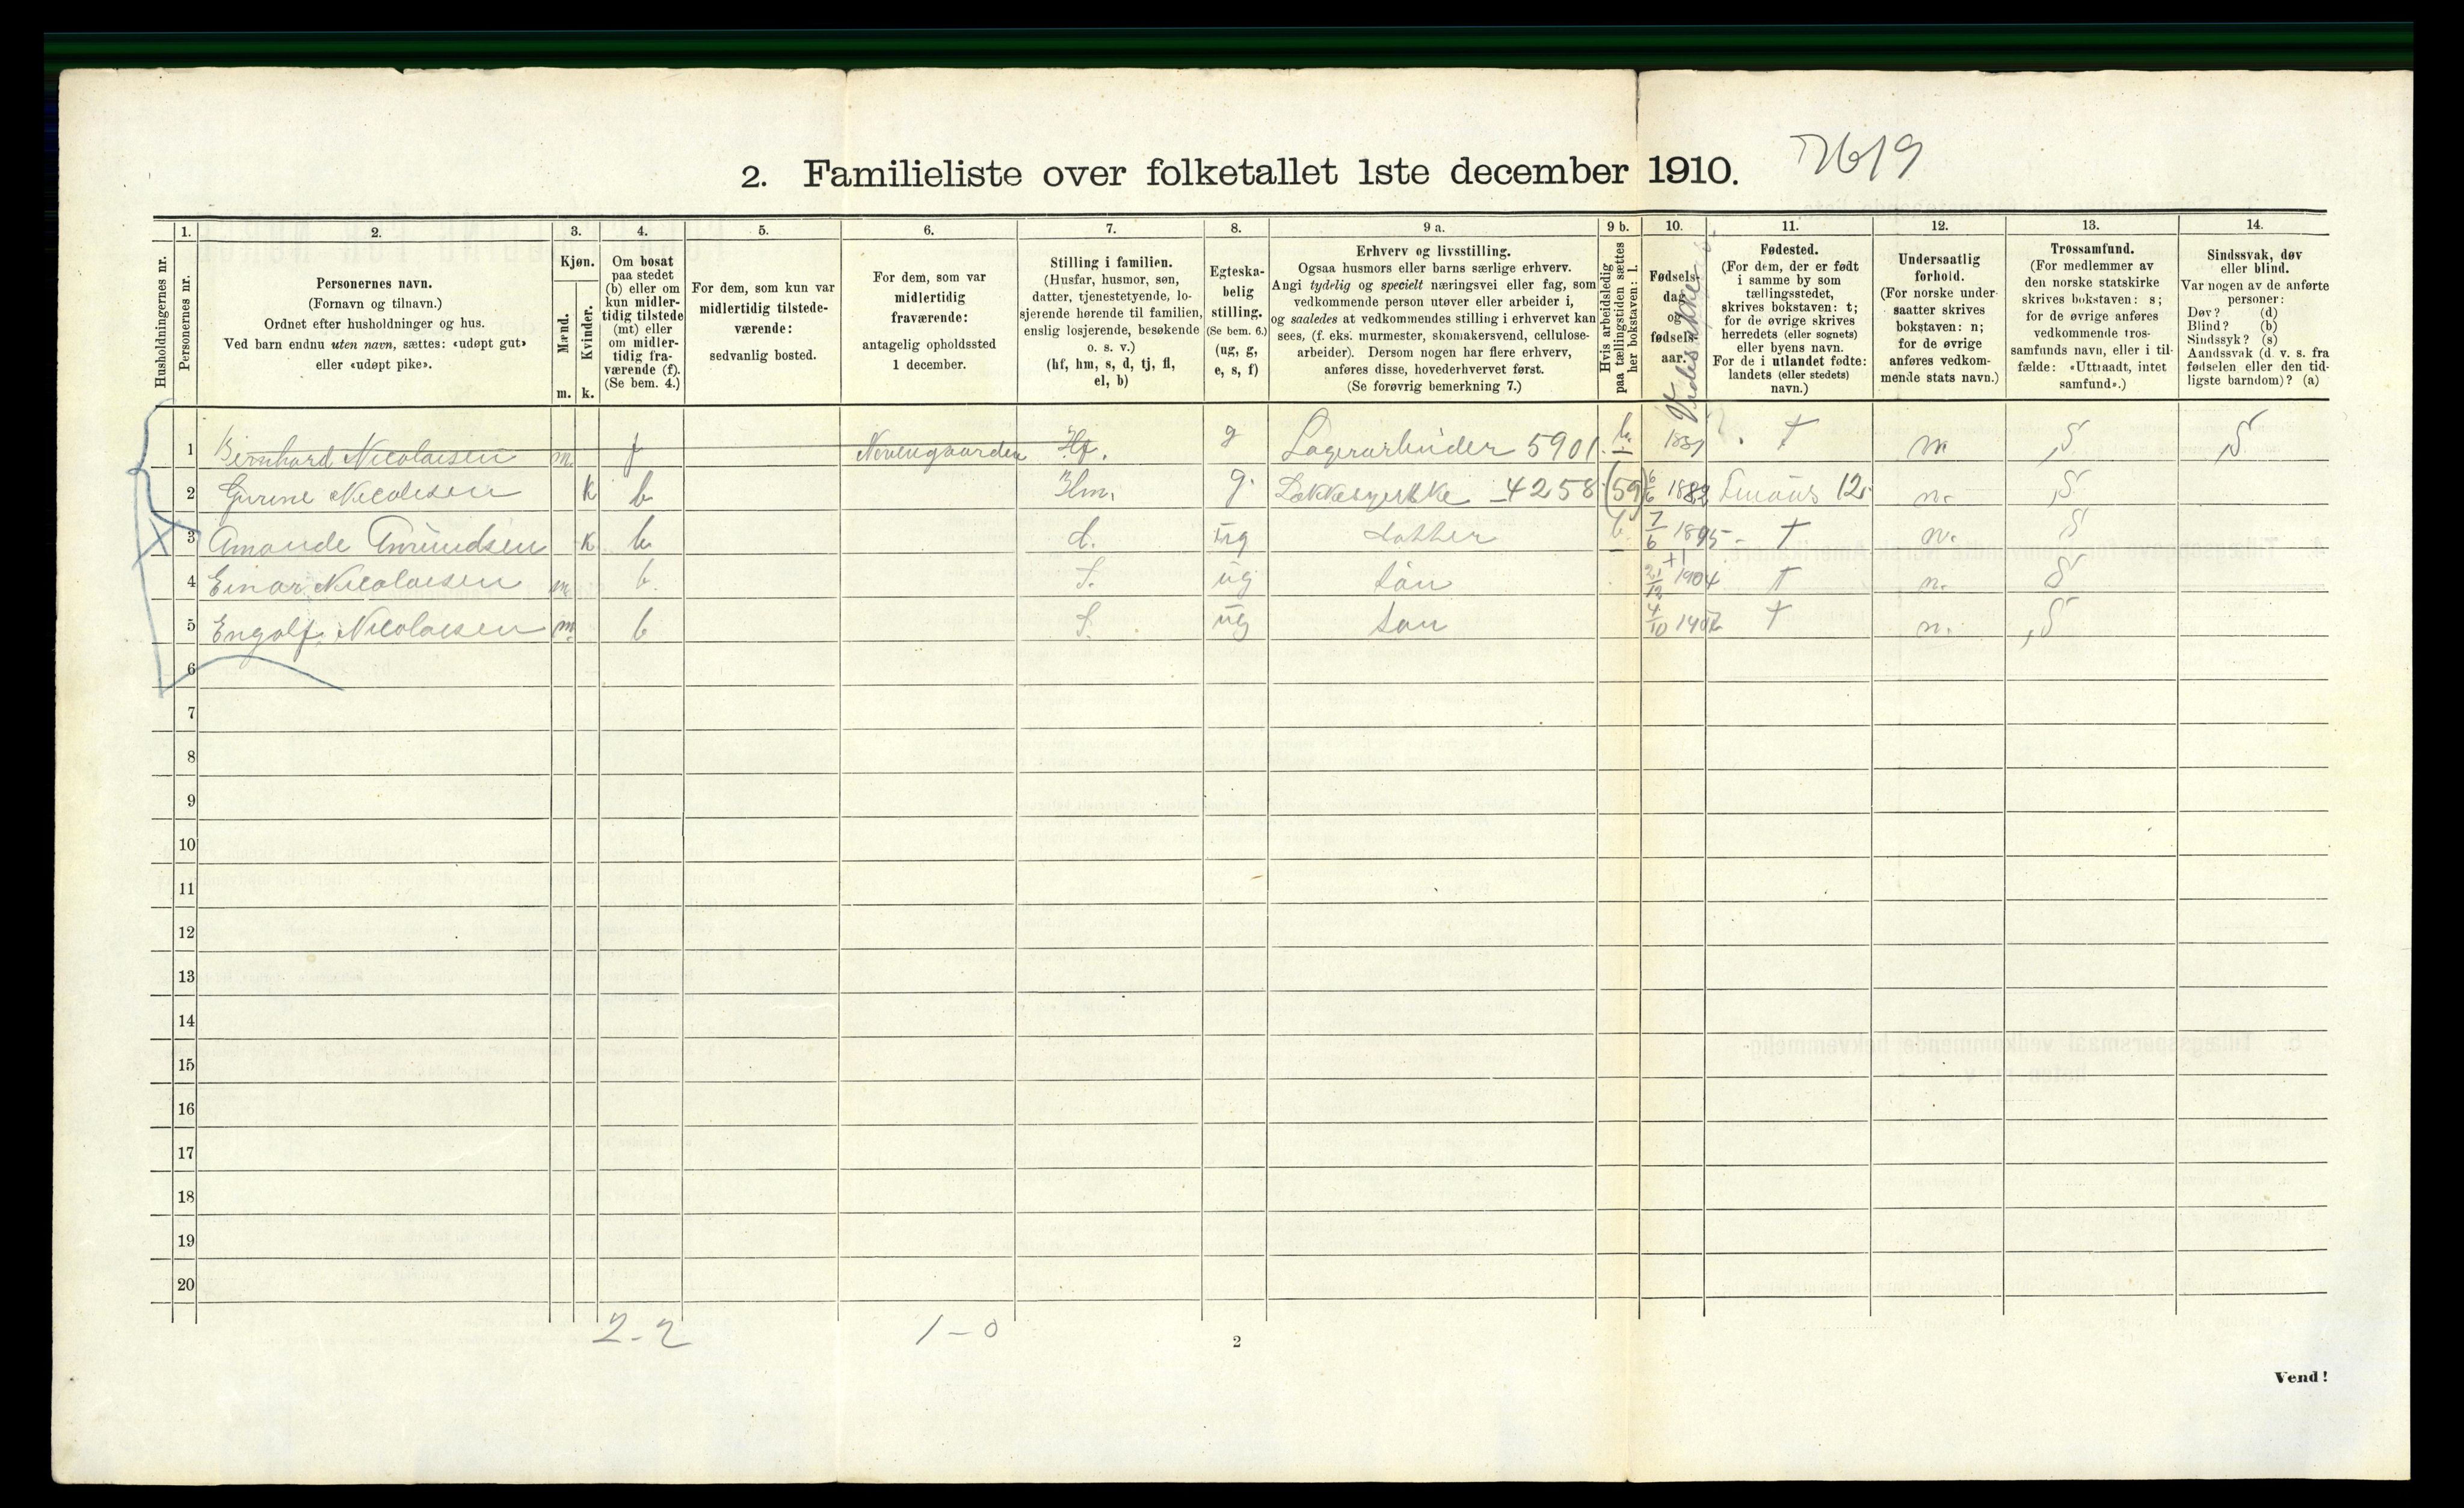 2. Familieliste over folketallet 1ste december 1910. 7619
Husholdningernes nr.
1. Personernes nr.
2. Personernes navn.
(Fornavn og tilnavn.)
Ordnet efter husholdninger og hus.
Ved barn endnu uten navn, sættes: «udøpt gut»
eller «udøpt pike».
3. Kjøn.
Mænd. m.
Kvinder. k.
4. Om bosat
paa stedet
(b) eller om
kun midler-
tidig tilstede
(mt) eller
om midler-
tidig fra-
værende (f).
(Se bem. 4.)
5. For dem, som kun var
midlertidig tilstede-
værende:
sedvanlig bosted.
6. For dem, som var
midlertidig
fraværende:
antagelig opholdssted
1 december.
7. Stilling i familien.
(Husfar, husmor, søn,
datter, tjenestetyende, lo-
sjerende hørende til familien,
enslig losjerende, besøkende
o. s. v.)
(hf, hm, s, d, tj, fl,
el, b)
8. Egteska-
belig
stilling.
(Se bem. 6.)
(ug, g,
e, s, f)
9 a. Erhverv og livsstilling.
Ogsaa husmors eller barns særlige erhverv.
Angi tydelig og specielt næringsvei eller fag, som
vedkommende person utøver eller arbeider i,
og saaledes at vedkommendes stilling i erhvervet kan
sees, (f. eks. murmester, skomakersvend, cellulose-
arbeider). Dersom nogen har flere erhverv,
anføres disse, hovederhvervet først.
(Se forøvrig bemerkning 7.)
9 b. Hvis arbeidsledig
paa tællingstiden sættes
her bokstaven: l.
10. Fødsels-
dag
og
fødsels-
aar.
11. Fødested.
(For dem, der er født
i samme by som
tællingsstedet,
skrives bokstaven: t;
for de øvrige skrives
herredets (eller sognets)
eller byens navn.
For de i utlandet fødte:
landets (eller stedets)
navn.)
12. Undersaatlig
forhold.
(For norske under-
saatter skrives
bokstaven: n;
for de øvrige
anføres vedkom-
mende stats navn.)
13. Trossamfund.
(For medlemmer av
den norske statskirke
skrives bokstaven: s;
for de øvrige anføres
vedkommende tros-
samfunds navn, eller i til-
fælde: «Uttraadt, intet
samfund».)
14. Sindssvak, døv
eller blind.
Var nogen av de anførte
personer:
Døv? (d)
Blind? (b)
Sindssyk? (s)
Aandssvak (d. v. s. fra
fødselen eller den tid-
ligste barndom)? (a)
1 Bernhard Nicolaisen m. f Nevengaarden Hf. g Lagerarbeider 5901 t n S S
2 Gurine Nicolaisen k b Hm. g. Sækkesyerske 4258 (59) 6/6 1882 12. n. S
3 Amande Amundsen k b d. ug datter 7/6 1895 t n. S
4 Einar Nicolaisen m. b. S. ug søn 21/12 1904 t n. S
5 Engolf Nicolaisen m. b S. ug søn 4/10 1907 t n. S
6
7
8
9
10
11
12
13
14
15
16
17
18
19
20
2-2 1-0
2
Vend!